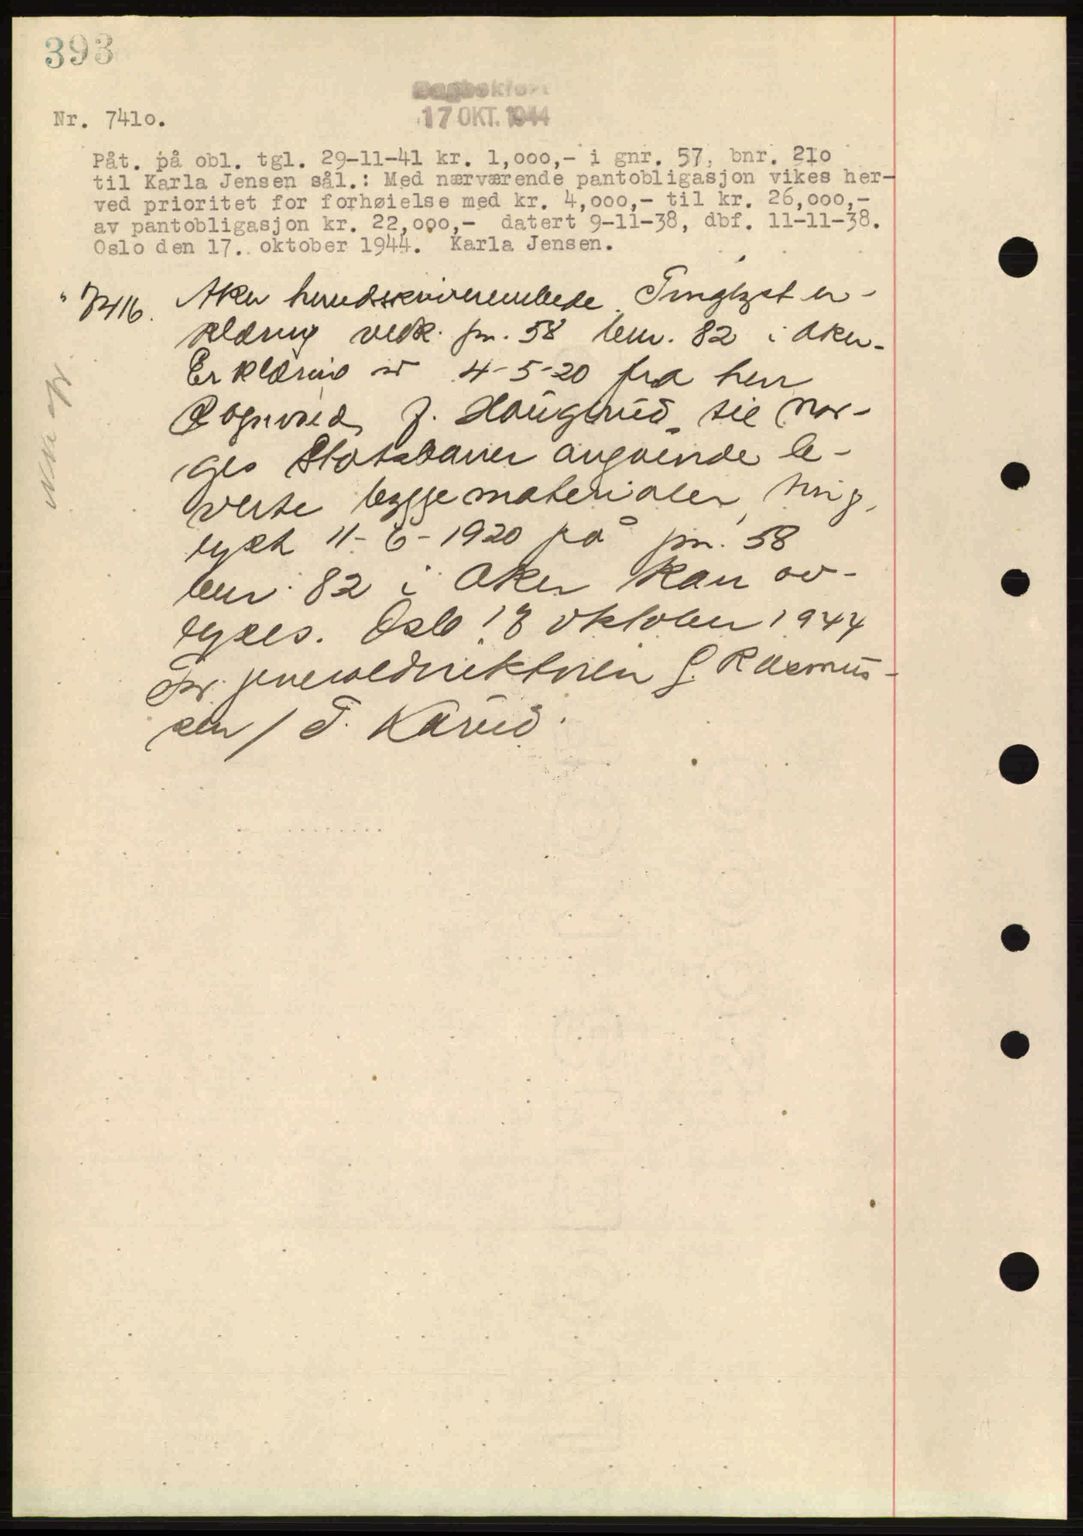 393
Dagbokført
17 OKT. 1944
Nr. 741o.
Påt. på obl. tgl. 29-11-41 kr. 1,ooo,- i gnr. 57, bnr. 21o
til Karla Jensen sål.: Med nærværende pantobligasjon vikes her-
ved prioritet for forhøielse med kr. 4,ooo,- til kr. 26,ooo,-
av pantobligasjon kr. 22,ooo,- datert 9-11-38, dbf. 11-11-38.
Oslo den 17. oktober 1944. Karla Jensen.
" 7416. Aker herredsskriverembede. Tinglyst er-
klæring vedk. gnr. 58 bnr. 82 i Aker.
Erklæring av 4-5-20 fra herr
Rognvald J. Haugerud til Nor-
ges Statsbaner angående le-
verte byggematerialer, ting-
lyst 11-6-1920 på gnr. 58
bnr. 82 i Aker kan av-
lyses. Oslo 13 oktober 1944
For generaldirektøren G. Rasmus-
sen / T.